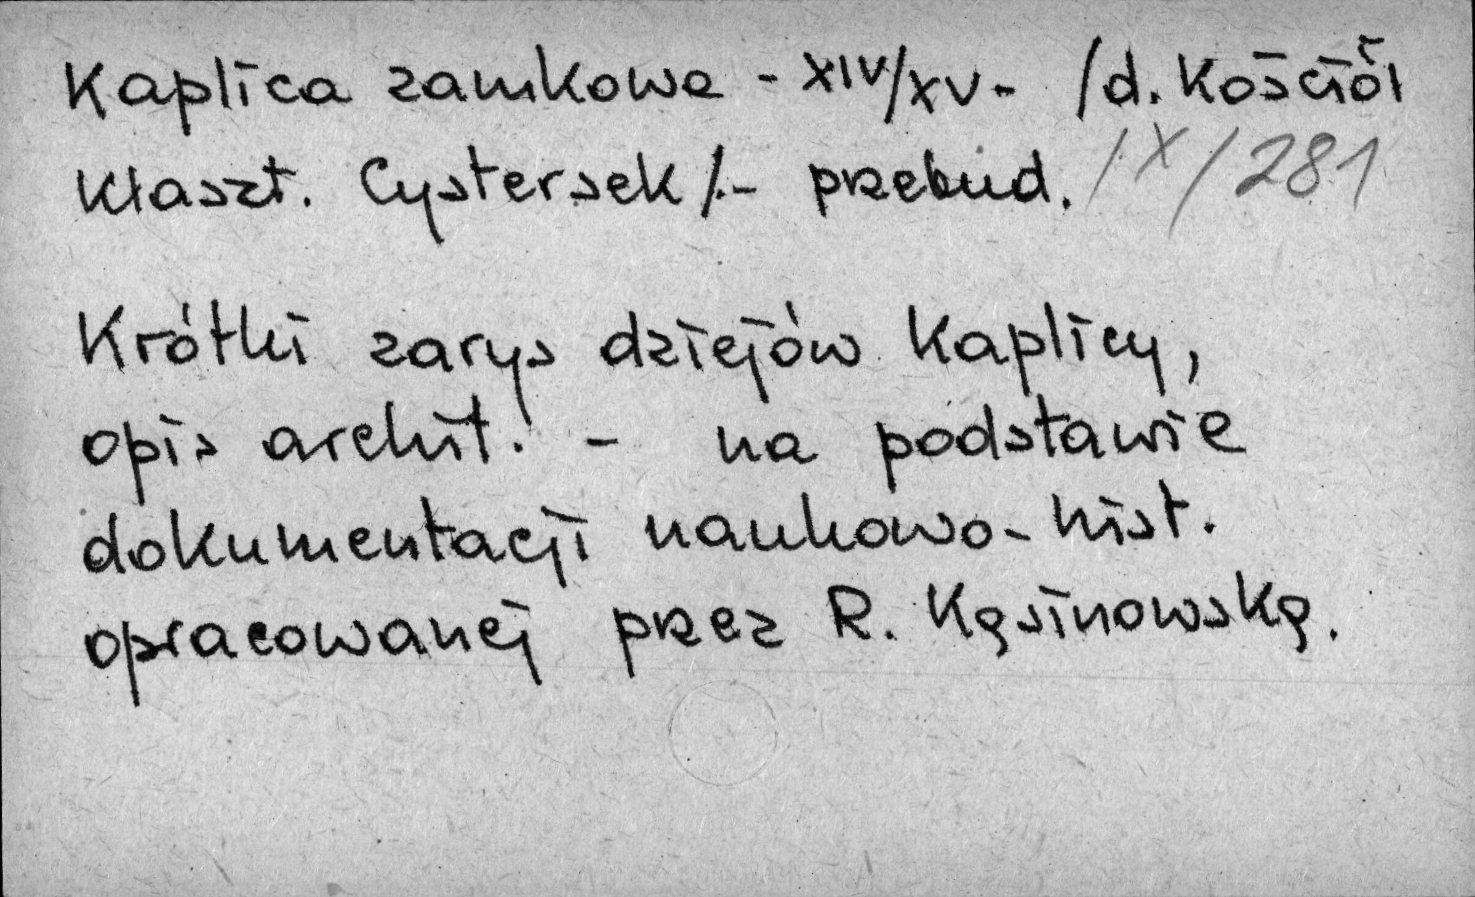 Kaplica zamkowa - XIV/XV - /d. Kościół
klaszt. Cystersek/.- przebud. /X/281
Krótki zarys dziejów kaplicy,
opis archit. - na podstawie
dokumentacji naukowo-hist.
opracowanej przez R. Kąsinowską.